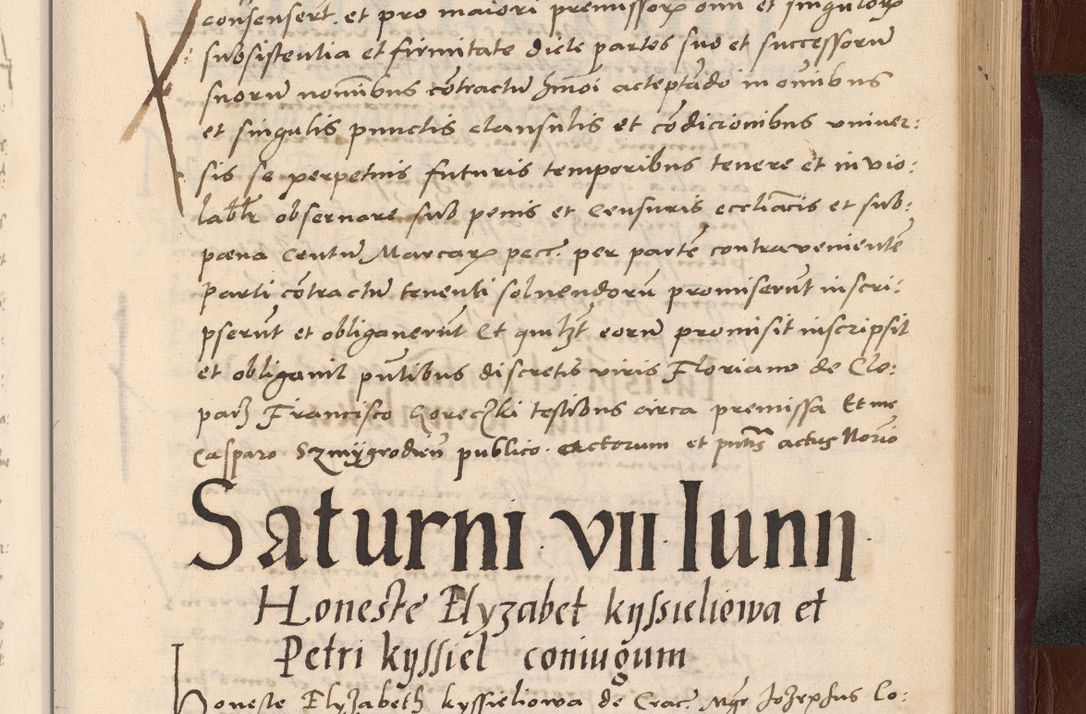 consenserūt et pro maiori premissorꝝ omī et singulorꝝ
subsistentia et firmitate dicte partes suo et successorū
suorū nomībus cōtractū hmōi acceptādo in omībus
et singulis punctis clausulis et cōdicionibus univer:
sis se perpetuis futuris temporibus tenere et in vio:
labĺr observare sub penis et censuris eccliācis et sub:
pœna centū Marcarꝝ pecc. per partē contravenientē
parti cōtractū tenenti solvendorū promiserūt inscri:
pserūt et obligauerūt Et quilȝt eorū promisit inscripsit
et obligauit pn̄tibus discretis viris Floriano de Clo:
parȝ Francisco Goreczki testibus circa premissa Et me
Casparo Szmygrodien̄ publico actorum et pn̄tis actus Norio
Saturni vii Iunii
Honeste Elyzabet kyssieliowa et
Petri kyssiel coniugum
Honeste Elyzabeth kyssieliowa de Crac. Mgr Jozephus Co: